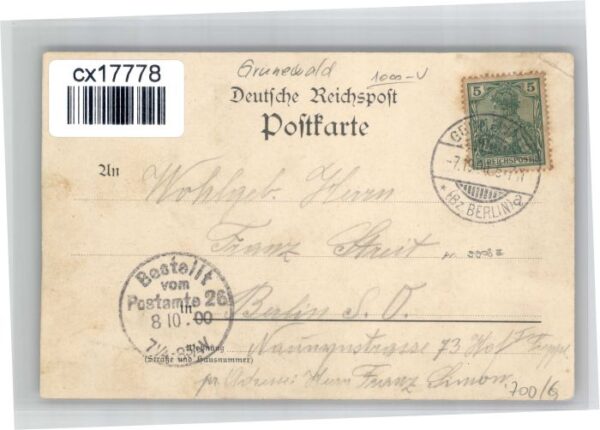 cx17778
Grunewald
1000-V
Deutsche Reichspost
Postkarte
5 5
REICHSPOST
-7.10
* (Bz. BERLIN) a
An
Wohlgeb. Herrn
Franz Streit
Bestellt
vom
Postamte 26
8 10 .00
7½-8¾N
in
Berlin S. O.
Wohnung
(Straße und Hausnummer)
Naunynstrasse 73 Hof
pr. Adresse Herrn Franz Simon.
700/G